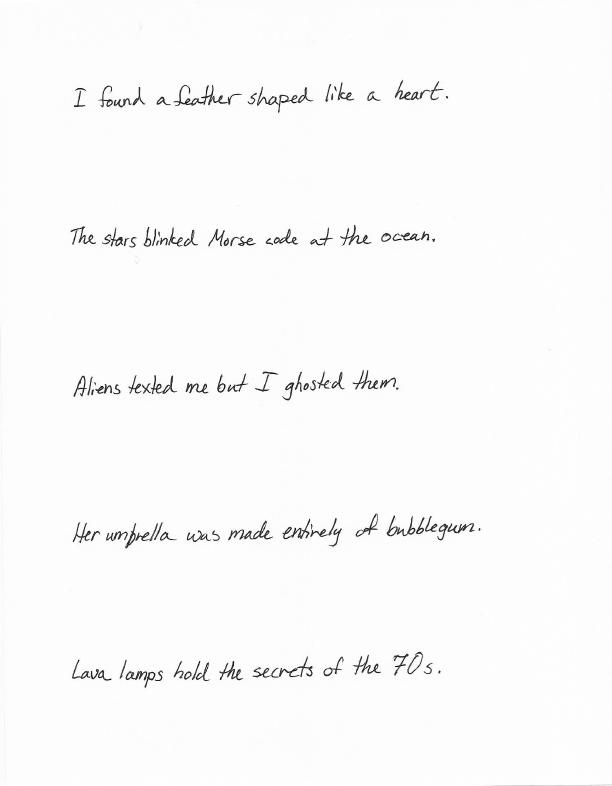 I found a feather shaped like a heart.
The stars blinked Morse code at the ocean.
Aliens texted me but I ghosted them.
Her umprella was made entirely of bubblegum.
Lava lamps hold the secrets of the 70s.